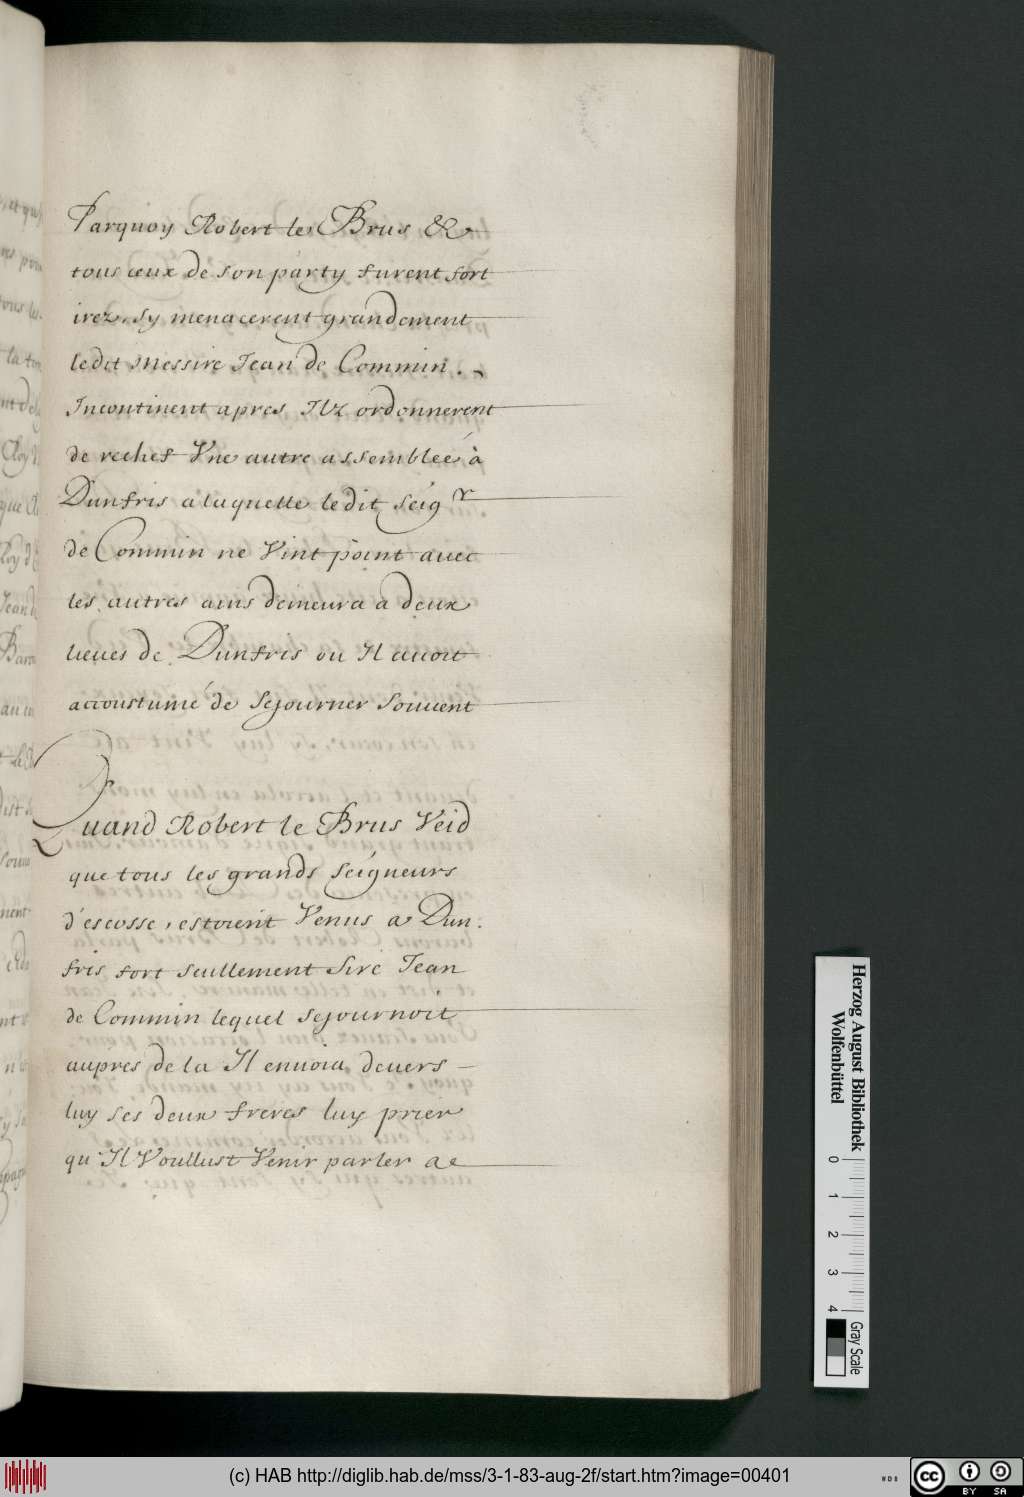 Parquoy Robert le Brus &
tous ceux de son party furent fort
irez, sy menacerent grandement
ledit Messire Jean de Commin.
Incontinent apres Ilz ordonnerent
de rechef Vne autre assembleé à
Dunfris a laquelle ledit seigr
de Commin ne Vint point auec
les autres ains demeura a deux
lieues de Dunfris ou Il auoit
accoustumé de Sejourner Souuent
Quand Robert le Brus Veid
que tous les grands seigneurs
d'escosse, estoient Venus a Dun.
fris fort seullement Sire Jean
de Commin lequel sejournoit
aupres de la Il enuoia deuers
luy ses deux freres luy prier
qu'Il Voullust Venir parler a
Herzog August Bibliothek
Wolfenbüttel
0 1 2 3 4
Gray Scale
(c) HAB http://diglib.hab.de/mss/3-1-83-aug-2f/start.htm?image=00401
WDB
cc BY SA